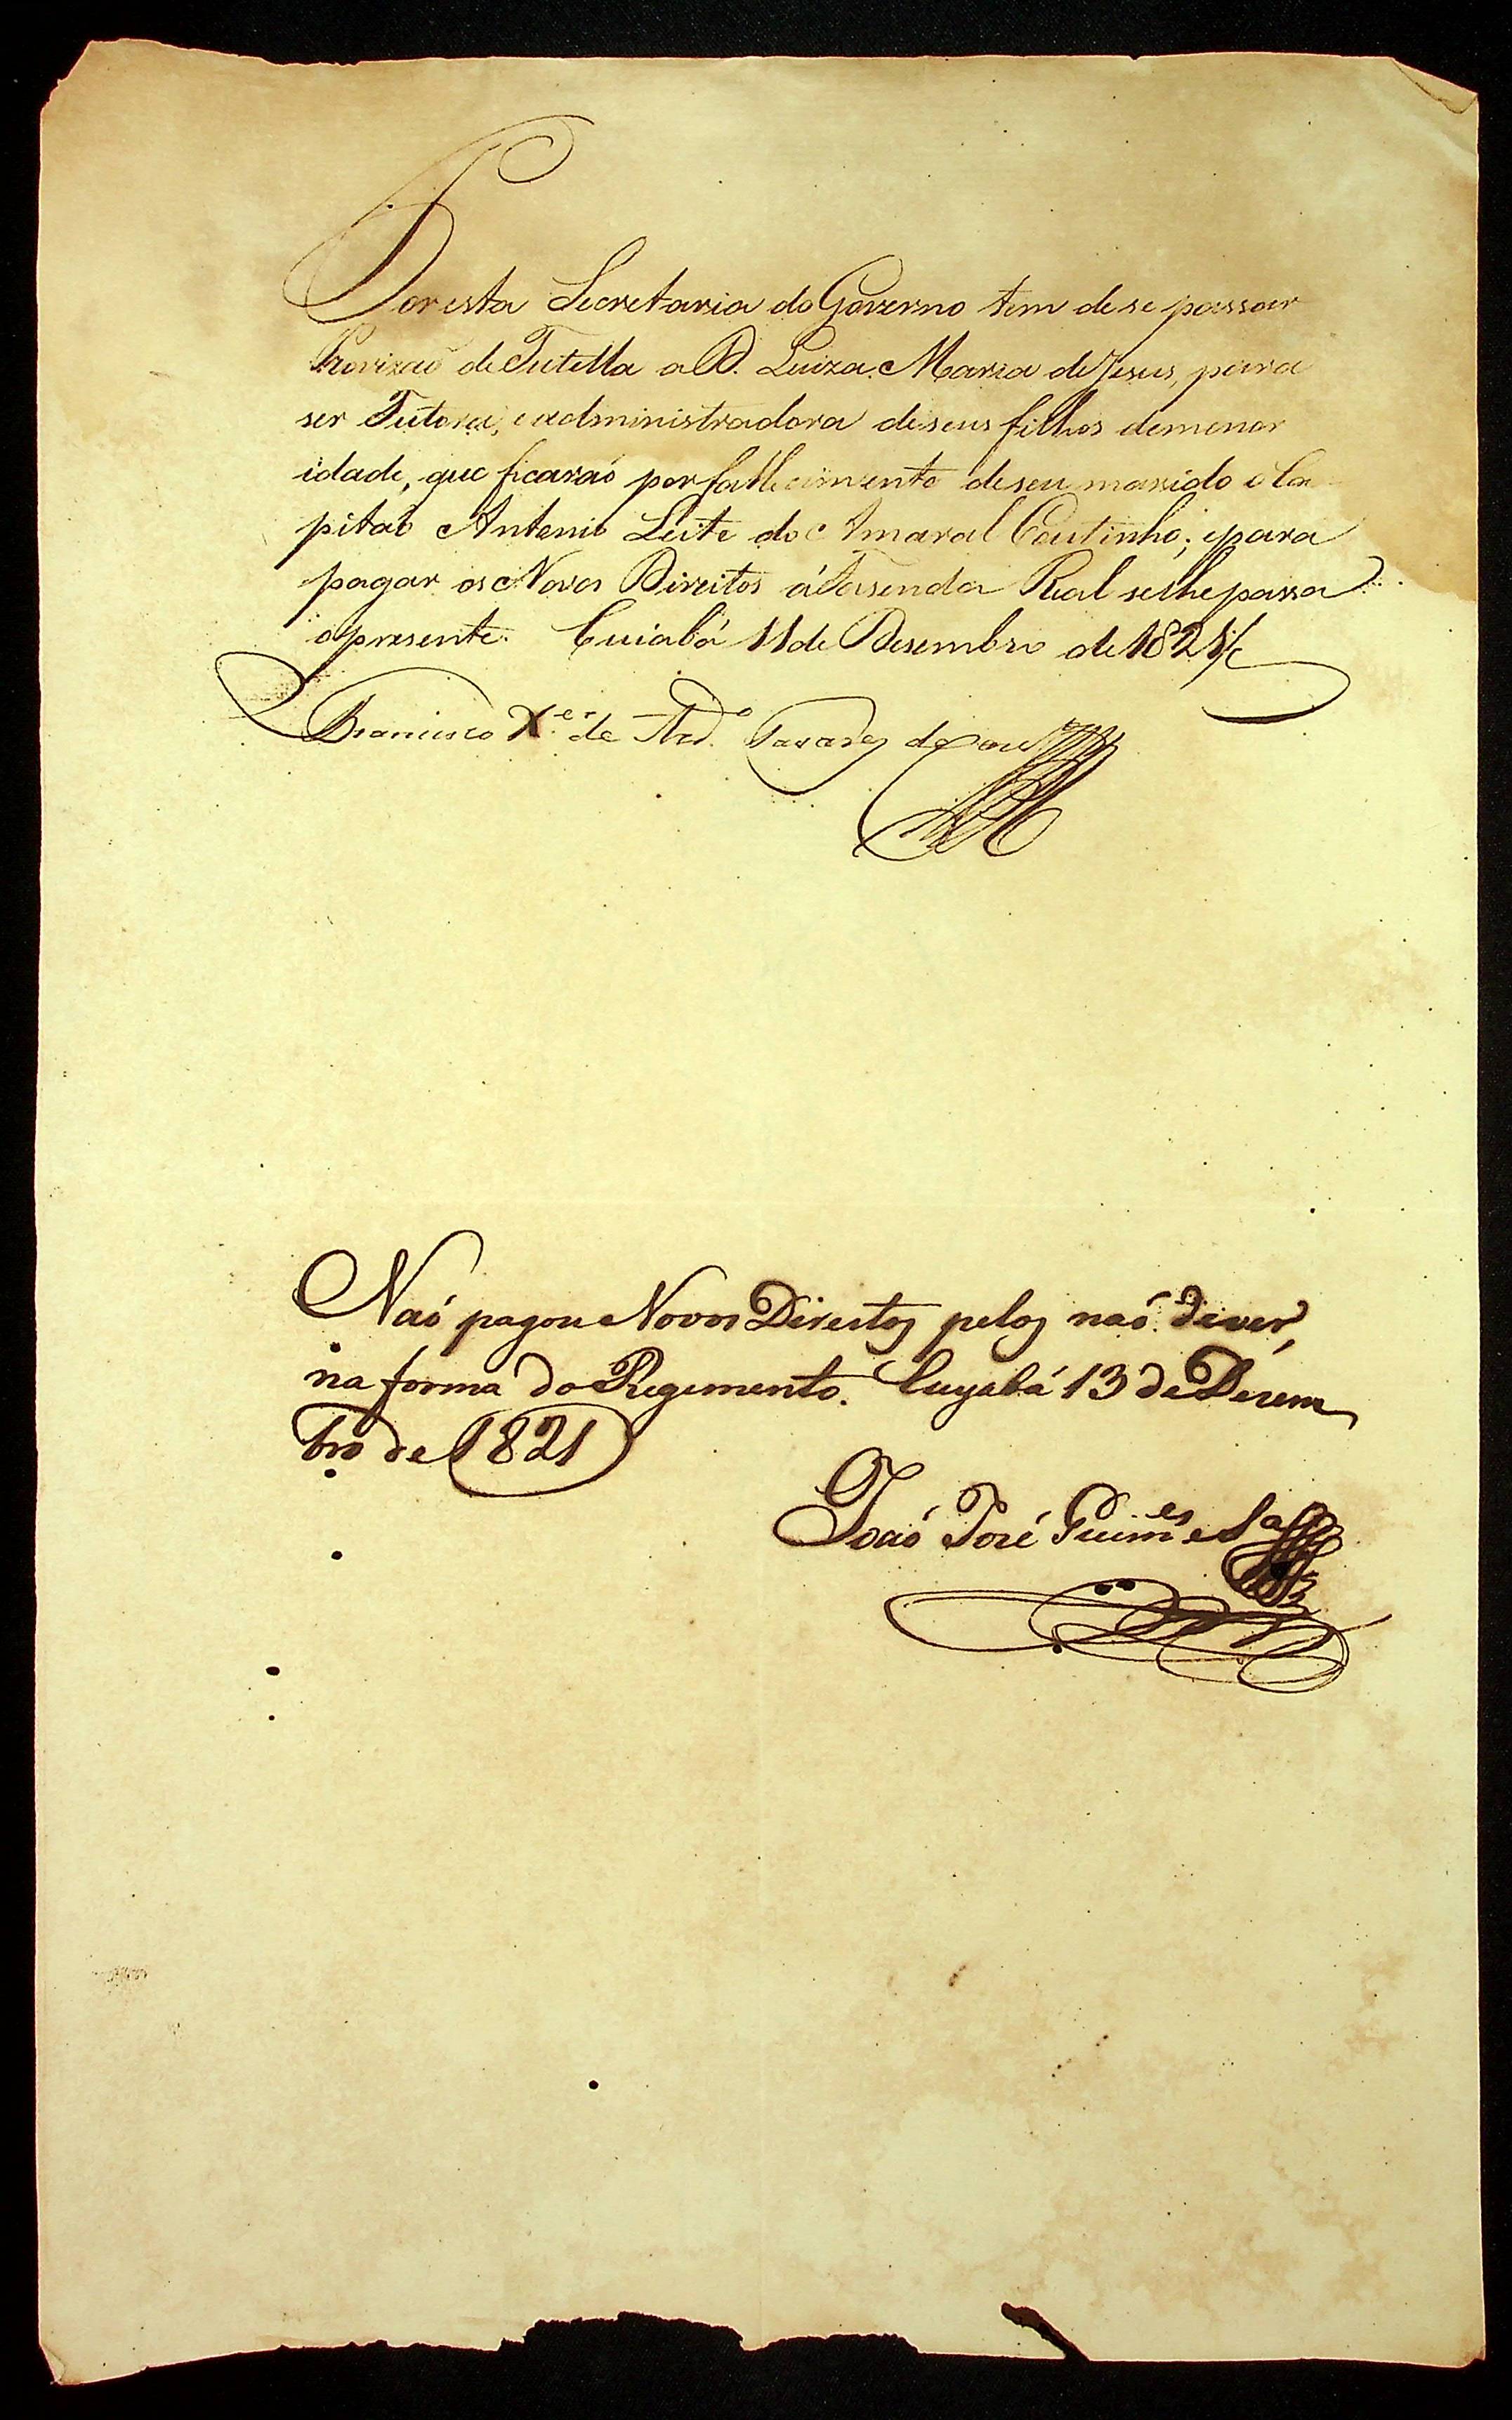 Por esta Secretaria do Governo tem de se passar
Provizaõ de Tutella a D. Luiza Maria de Jesus, para
ser Tutora, e administradora de seus filhos de menor
idade, que ficaraõ por fallecimento de seu marido o Ca
pitaõ Antonio Leite do Amaral Coutinho; e para
pagar os Novos Direitos á Fasenda Real se lhe passa
o presente. Cuiabá 11 de Desembro de 1821
Francisco X.er de Tavares
Naó pagou Novos Direitos pelos naó dever,
na forma do Regimento. Cuyabá 13 de Dezem
bro de 1821
Joaó José Guim.es e Sa